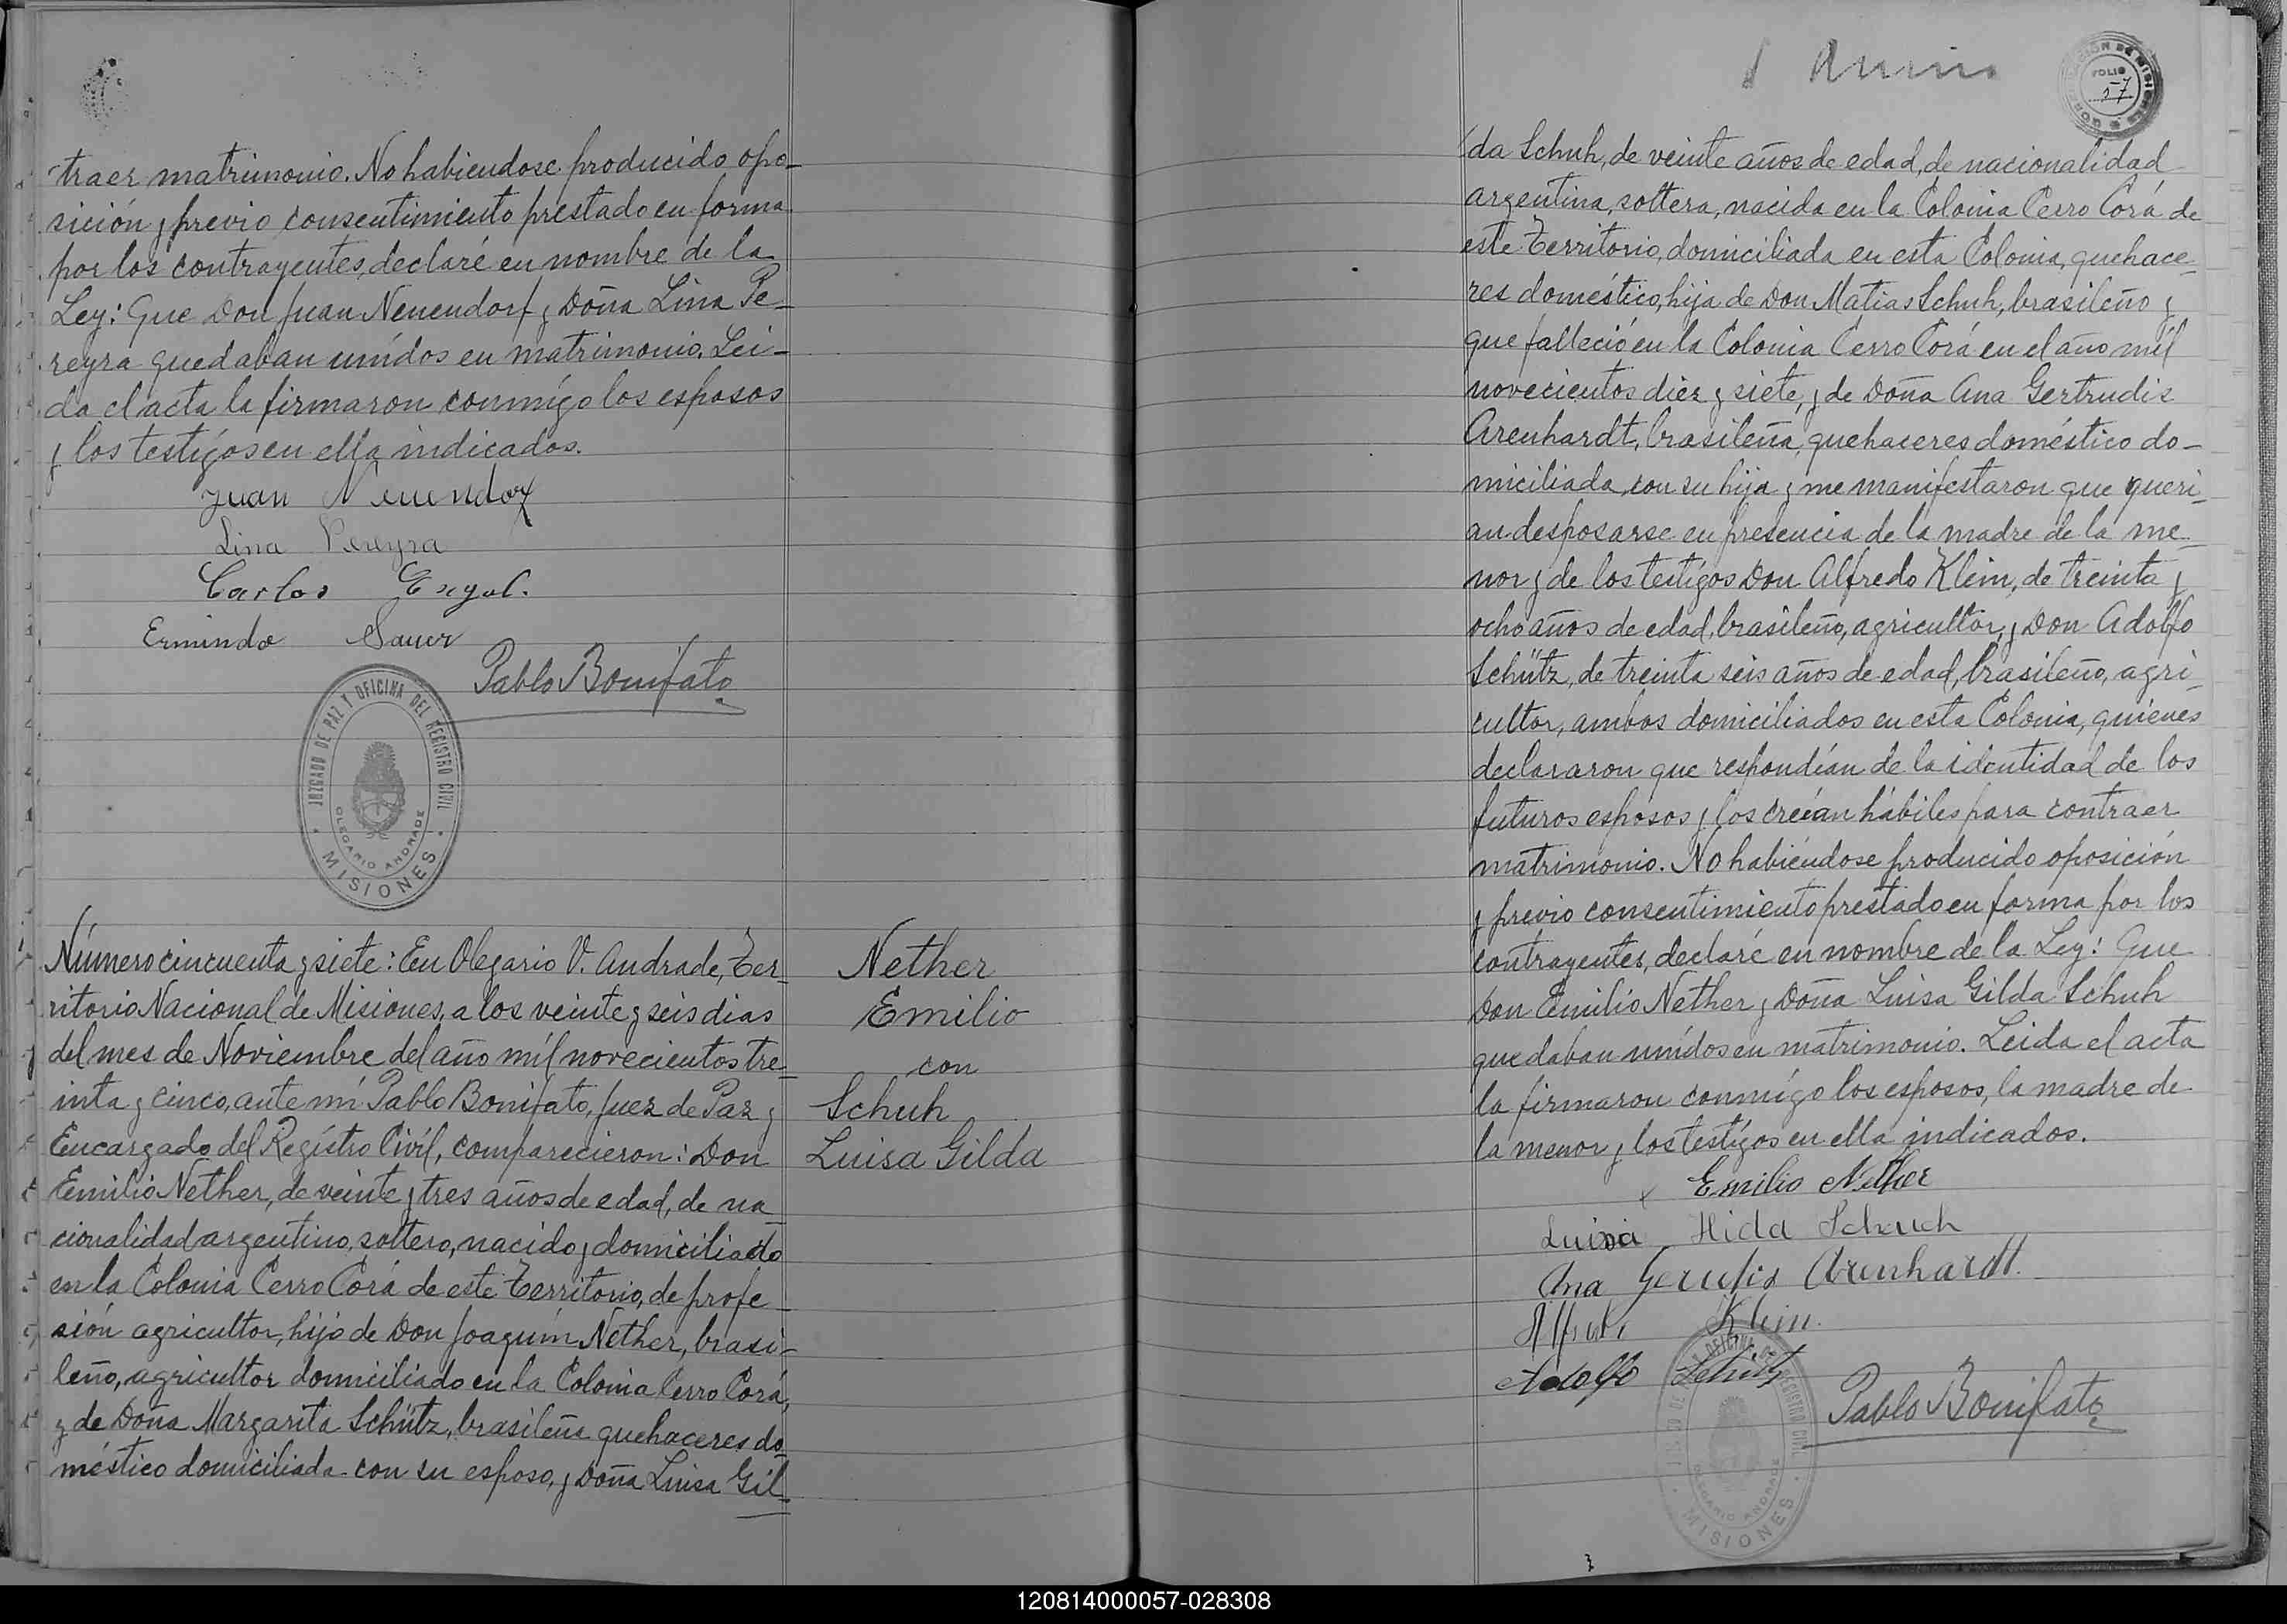 traer matrimonio. No habiendose producido opo-
sición y previo consentimiento prestado en forma
por los contrayentes, declaré en nombre de la
Ley: Que Don Juan Neuendorf y Doña Lina Pe-
reyra quedaban unídos en matrimonio. Lei-
da el acta la firmaron conmígo los esposos
y los testígos en ella indicados.
Juan Neuendorf
Lina Pereyra
Carlos Engel.
Ermindo Sauer
Pablo Bonifato
JUZGADO DE PAZ Y OFICINA DEL REGISTRO CIVIL
OLEGARIO ANDRADE
MISIONES
Número cincuenta y siete: En Olegario V. Andrade, Ter-
ritorio Nacional de Misiones, a los veinte y seis dias
del mes de Noviembre del año míl novecientos tre-
inta y cinco, ante mí Pablo Bonifato, Juez de Paz y
Encargado del Regístro Civíl, comparecieron: Don
Emilio Nether, de veinte y tres años de edad, de na-
cionalidad argentino, soltero, nacido y domiciliado
en la Colonia Cerro Corá de este Territorio, de profe-
sión agricultor, hijo de Don Joaquín Nether, brasi-
leño, agricultor domiciliado en la Colonia Cerro Corá,
y de Doña Margarita Schütz, brasileña quehaceres do-
méstico domiciliada con su esposo, y Doña Luisa Gil-
Nether
Emilio
con
Schuh
Luisa Gilda
FOLIO
57
da Schuh, de veinte años de edad, de nacionalidad
argentina, soltera, nacida en la Colonia Cerro Corá de
este Territorio, domiciliada en esta Colonia, quehace-
res doméstico, hija de Don Matias Schuh, brasileño y
que falleció en la Colonia Cerro Corá en el año míl
novecientos diez y siete, y de Doña Ana Gertrudis
Arenhardt, brasileña, quehaceres doméstico do-
miciliada con su hija y me manifestaron que queri-
an desposarse en presencia de la madre de la me-
nor y de los testígos Don Alfredo Klein, de treinta y
ocho años de edad, brasileño, agricultor, y Don Adolfo
Schütz, de treinta seis años de edad, brasileño, agri-
cultor, ambos domiciliados en esta Colonia, quienes
declararon que respondían de la identidad de los
futuros esposos y los creían hábiles para contraer
matrimonio. No habiéndose producido oposición
y previo consentimiento prestado en forma por los
contrayentes, declaré en nombre de la Ley: Que
Don Emilio Nether y Doña Luisa Gilda Schuh
quedaban unídos en matrimonio. Leida el acta
la firmaron conmígo los esposos, la madre de
la menor y los testígos en ella indicados.
Emilio Nether
Luisa Hida Schuch
Ana Gerutis Arenhardt.
Klein.
Adolfo Schütz
Pablo Bonifato
OLEGARIO ANDRADE
MISIONES
120814000057-028308